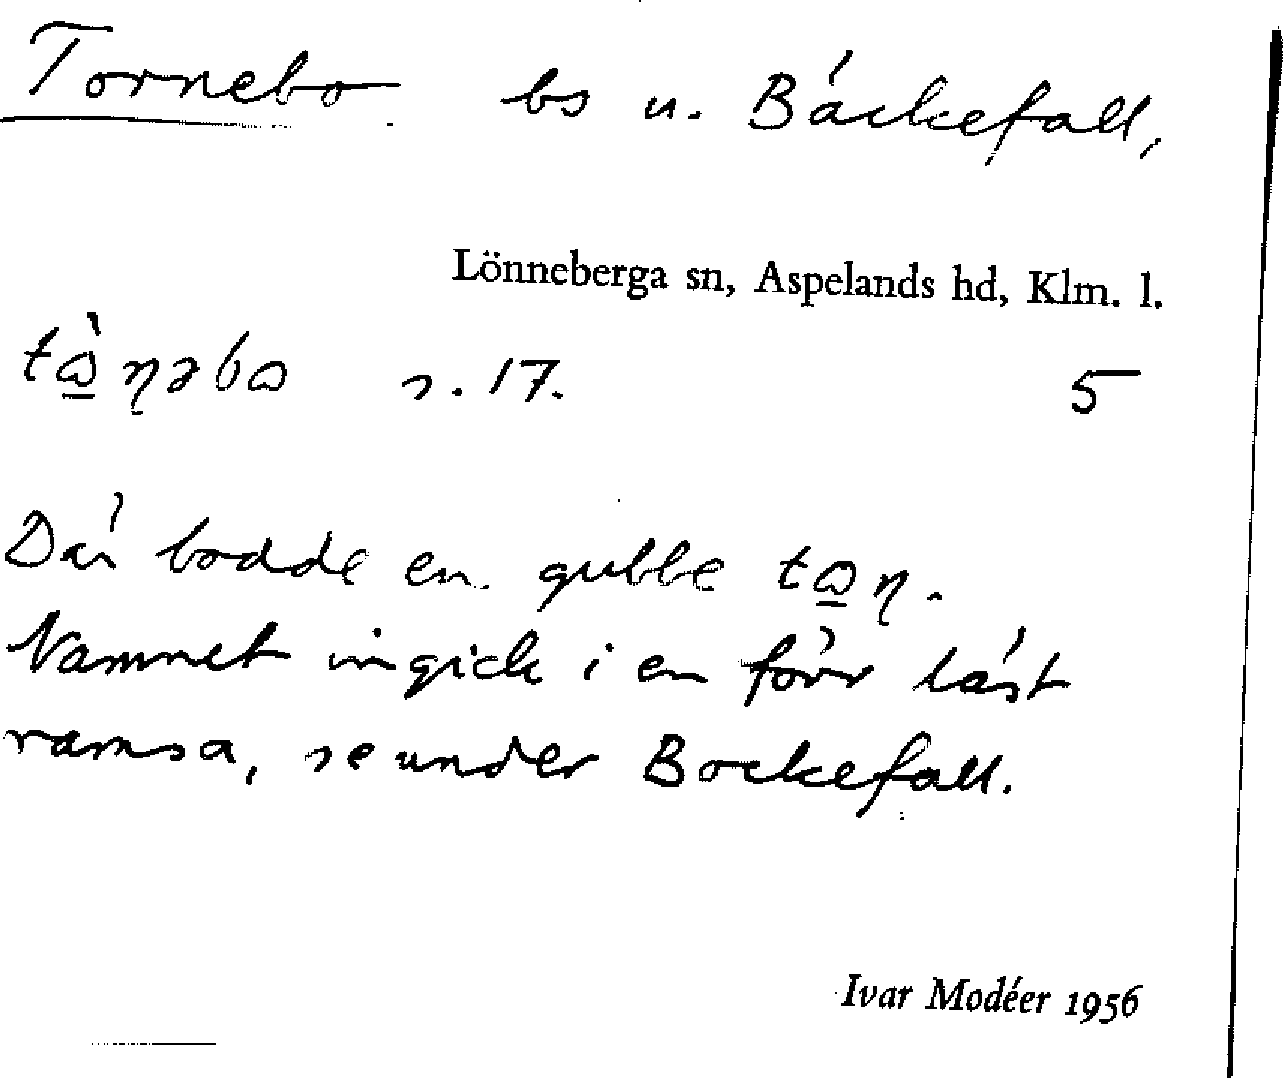 Tornebo bs u. Bäckefall,
Lönneberga sn, Aspelands hd, Klm. l.
tὼ̱ŋəbω s. 17. 5
Där bodde en gubbe tω̱ŋ.
Namnet ingick i en förr läst
ramsa, se under Bockefall.
Ivar Modéer 1956